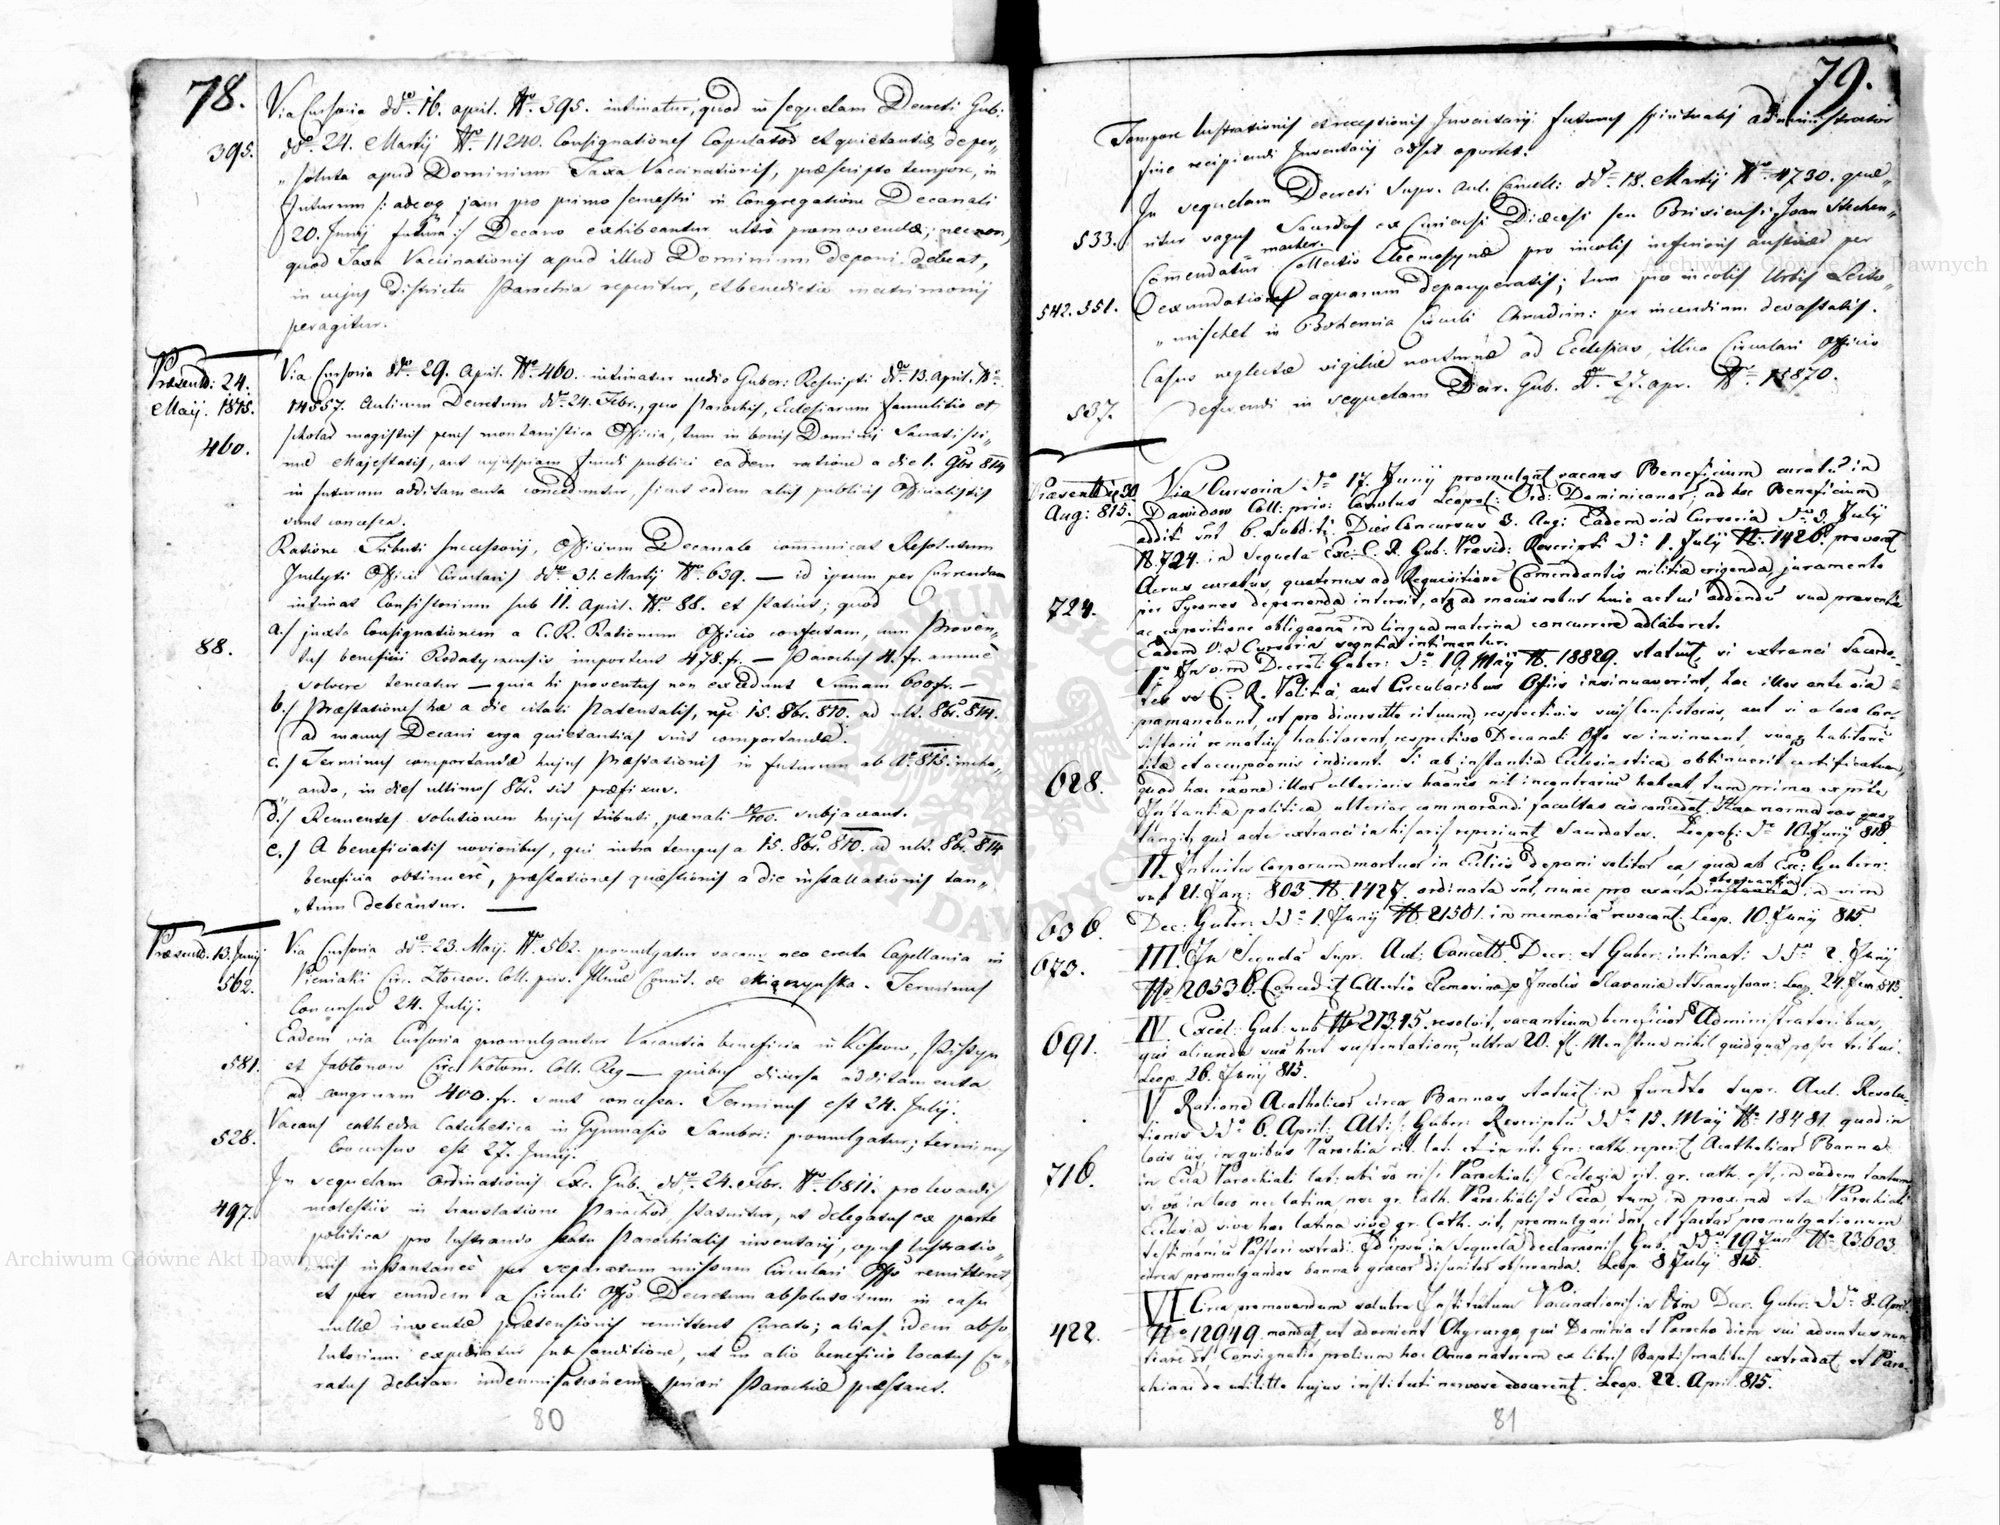 78.
Via Cursoria ddto 16. april. Nro 395. intimatur, quod in sequelam Decreti Gub:
395.
ddto 24. Martij Nro 11240. Consignationes Copulator et quietantiæ deper,,
,,soluta apud Dominium Taxa Vaccinationis, præscripto tempore, in
futurum /: adeoq jam pro primo semestri in Congregatione Decanali
20. Junij futura :/ Decano exhibeantur ultro promovendæ; nec non,
quod Taxa Vaccinationis apud illud Dominium deponi debeat,
in cujus districtu Parochia reperitur, et benedictio matrimonij
peragitur.
Præsentt: 24.
Maij. 1815.
460.
Via Cursoria ddto 29. April. Nro 460. intimatur medio Guber: Rescripti ddto 13. April. Nro
14557. Aulicum Decretum ddto 24. Febr., quo Parochis, Ecclesiarum famulitio et
scholar magistris penes montanistica Officia, tum in bonis Dominij Sacratissi,,
mæ Majestatis, aut cujuspiam fundi publici eadem ratione a die 1. 9bris 814
in futurum additamenta conceduntur, sicut eadem aliis publicis Officialistis
sunt concessa.
Ratione Tributi Successorij, Officium Decanale communicat Resolutum
Inclyti Officii Circularis ddto 31. Martij Nro 639. — id ipsum per Currendam
intimat Consistorium sub 11. April. Nro 88. et statuit; quod
88.
a./ juxta Consignationem a C. R. Rationum Officio confectam, cum Proven,,
tus beneficii Rodatycensis importent 478. fr. — Parochus 4. fr. annue
solvere teneatur — quia hi proventus non excedunt Summam 600 fr. —
b./ Præstationes hæ a die citati Patentalis, 15. 8br. 810. ad ult. 8br. 814.
ad manus Decani erga quietantias sunt comportandæ.
c./ Terminus comportandæ hujus Præstationis in futurum ab Ao 815. incho,,
ando, in dies ultimos 8br. sit præfixus.
d./ Renuentes solutionem hujus tributi, pænali 10/100. subjaceant.
e./ A beneficiatis novioribus, qui intra tempus a 15. 8br. 810. ad ult. 8br. 814
beneficia obtinuere, præstationes quæstionis a die installationis tan,,
,,tum debeantur. —
Præsentt. 13. Junij
562.
Via Cursoria ddto 23. Maij. Nro 562. promulgatur vacans neo erecta Capellania in
Pieniaki Circ. Zloczov. Coll. priv. Illmæ Comit. de Miączyńska. Terminus
Concursus 24. Julij.
581.
Eadem via Cursoria promulgantur Vacantia beneficia in Kossow, Pistyn
et Jabłonow Circ. Kołom. Coll. Reg — quibus diversa additamenta
ad congruam 400. fr. sunt concessa. Terminus est 24. Julij.
528.
Vacans cathedra Catechetica in Gymnasio Sambor: promulgatur; terminus
Concursus est 27. Junij.
497.
In sequelam Ordinationis Exc. Gub. ddto 24. Febr. Nro 6811. pro levandis
molestiis in translatione Parochor statuitur, ut delegatus ex parte
politica pro lustrando statu Parochialis inventarij, opus lustratio,,
,,nis instantanee per separatum nissum Circulari Offo remitteret,
et per eundem a Circuli Offo Decretum absolutorium in casu
nullæ inventæ prætensionis remitteret Curato; alias idem abso
lutorium expediatur sub Conditione, ut in alio beneficio locatus Cu,,
ratus debitam indemnisationem priori Parochiæ præstaret.
80
79.
Tempore lustrationis et receptionis Inventarij futurus spiritualis administrator
sine recipiendi Inventarij adsit oportet.
533.
In sequelam Decreti Supr. Aul. Cancell: ddto 18. Martij Nro 4730. quæ,,
ritur vagus Sacerdos ex Curiensi Diæcesi seu Brixiensi Joan Stechen,,
macher.
542. 551.
Comendatur Collectio Eleemosynæ pro incolis inferioris austriæ per
exundationes aquarum depauperatis; tum pro incolis Urbis Leito,,
,,mischel in Bohemia Circuli Chrudim: per incendium devastatis.
537.
Casus neglectæ vigiliæ nocturnæ ad Ecclesias, illico Circulari Officio
deferendi in sequelam Decr. Gub. ddto 27. apr. Nro 15870.
Præsentt die 30
Aug: 815.
Via Cursoria dto 17. Junij promulgat vacans Beneficium curatu in
Dawidow Coll: priv: Canolus Leopol: Ord: Dominicanor; ad hoc Beneficium
addit sunt 6. subditi, Dies Concursus 3. Aug: Eadem via Cursoria dto 3. July
724.
N. 724. in Sequela Exc: C. R. Gub: Præsid: Rescripti dto 1. July N. 1426. provocat
Clerus curatus, quatenus ad Requisitione Comendantis militiæ erigenda, juramento
per Tyrones deponenda intersit, atq ad maius robur huic actui addendu sua præsentia
ac expositione obligaonu in lingua materna concurrere adlaboret.
Eadem Via Cursoria seqntia intimantur.
628.
I. In vim Decreti Guber: dto 19. May N. 18829. statuit, si extranei Sacerdo,,
tes se C. R. Politiæ, aut Circularibus Offiis insinuaverint, hoc illos ante oia
permanebunt, ut pro diversitte rituum, respectivis suis Consistoriis, aut si a loco Con,,
sistorii remotius habitarent, respectivo Decanali Offo se insinuent, suaq habitaone
sitæ et occupaonis indicent. Si ab instantia Ecclesiastica obtinuerit certificatum,
quod hoc raone illius ulterioris haonis nil in contrarium habeat, tum primo ex prte
Instantiæ politicæ ulterior commorandi facultas eis concedat. Hæc norma eos quoq
tangit, qui actu extranei in his oris reperiunt Sacerdotes. Leopol: dto 10. Junij 815.
636.
II. Intuitu Corporum mortuor in Ecclia deponi solitor ea, quæ ab Exc: Gubern:
sub 21. Jan: 803. N. 1427. ordinata sunt, nunc pro exacta observantia in vim
Dec: Guber: ddto 1. Junij N. 21501. in memoria revocant. Leop. 10. Junij 815.
673.
III. In Sequela Supr. Aul: Cancell. Decr: et Guber: intimati ddto 2. Junij
No 20536. Concedit Collectio Elemosinæ p Incolis Slavoniæ et Transylvan: Leop. 24. Jun. 815.
691.
IV. Excel: Gub: sub N. 27315. resolvit, vacantium beneficior Administratoribus,
qui aliunde sua hnt sustentatione, ultra 20. fl. Menstrua nihil quidqua posse tribui.
Leop. 26. Junij 815.
716.
V. Ratione Acatholicor circa Bannas statuit in fundto Supr. Aul. Resolu,,
tionis ddto 6. April: Alti: Guber: Rescriptu ddto 15. May No 18481. quod in
locis iis, in quibus Parochia rit. lat. et in rit. Gr: cath. reperit Acatholicor Bannæ
in Ecclia Parochiali lat: ubi vo nisi Parochialis Ecclesia rit. gr. cath. est, in eadem tantum
si vo in loco nec latina, nec gr. cath. Parochialis e Ecclia, tum, in proxime sita Parochiali
Eclesia sive hæc latina sive gr. Cath. sit, promulgari dnt, et factar promulgationum
testimoniu Pastori extradi. Id ipsu in Sequela declaraonis Gub. ddto 19. Jun No 23603.
circa promulgandas bannas græcor disunitor observanda. Leop. 8 July 815.
422.
VI. Circa promovendum salubre Institutum Vaccinationis in Vim Decr: Guber: ddto 8. April.
No 12949. mandat, ut advenient Chyrurgo, qui Dominia et Parocho diem sui adventus nun
tiare dt, Consignatio prolium hoc Anno natorum ex libris Baptismalibus extradat, et Paro,,
chiani de utilitte hujus instituti nervose edoceant. Leop. 22. April 815.
81
Archiwum Główne Akt Dawnych
Archiwum Główne Akt Dawnych